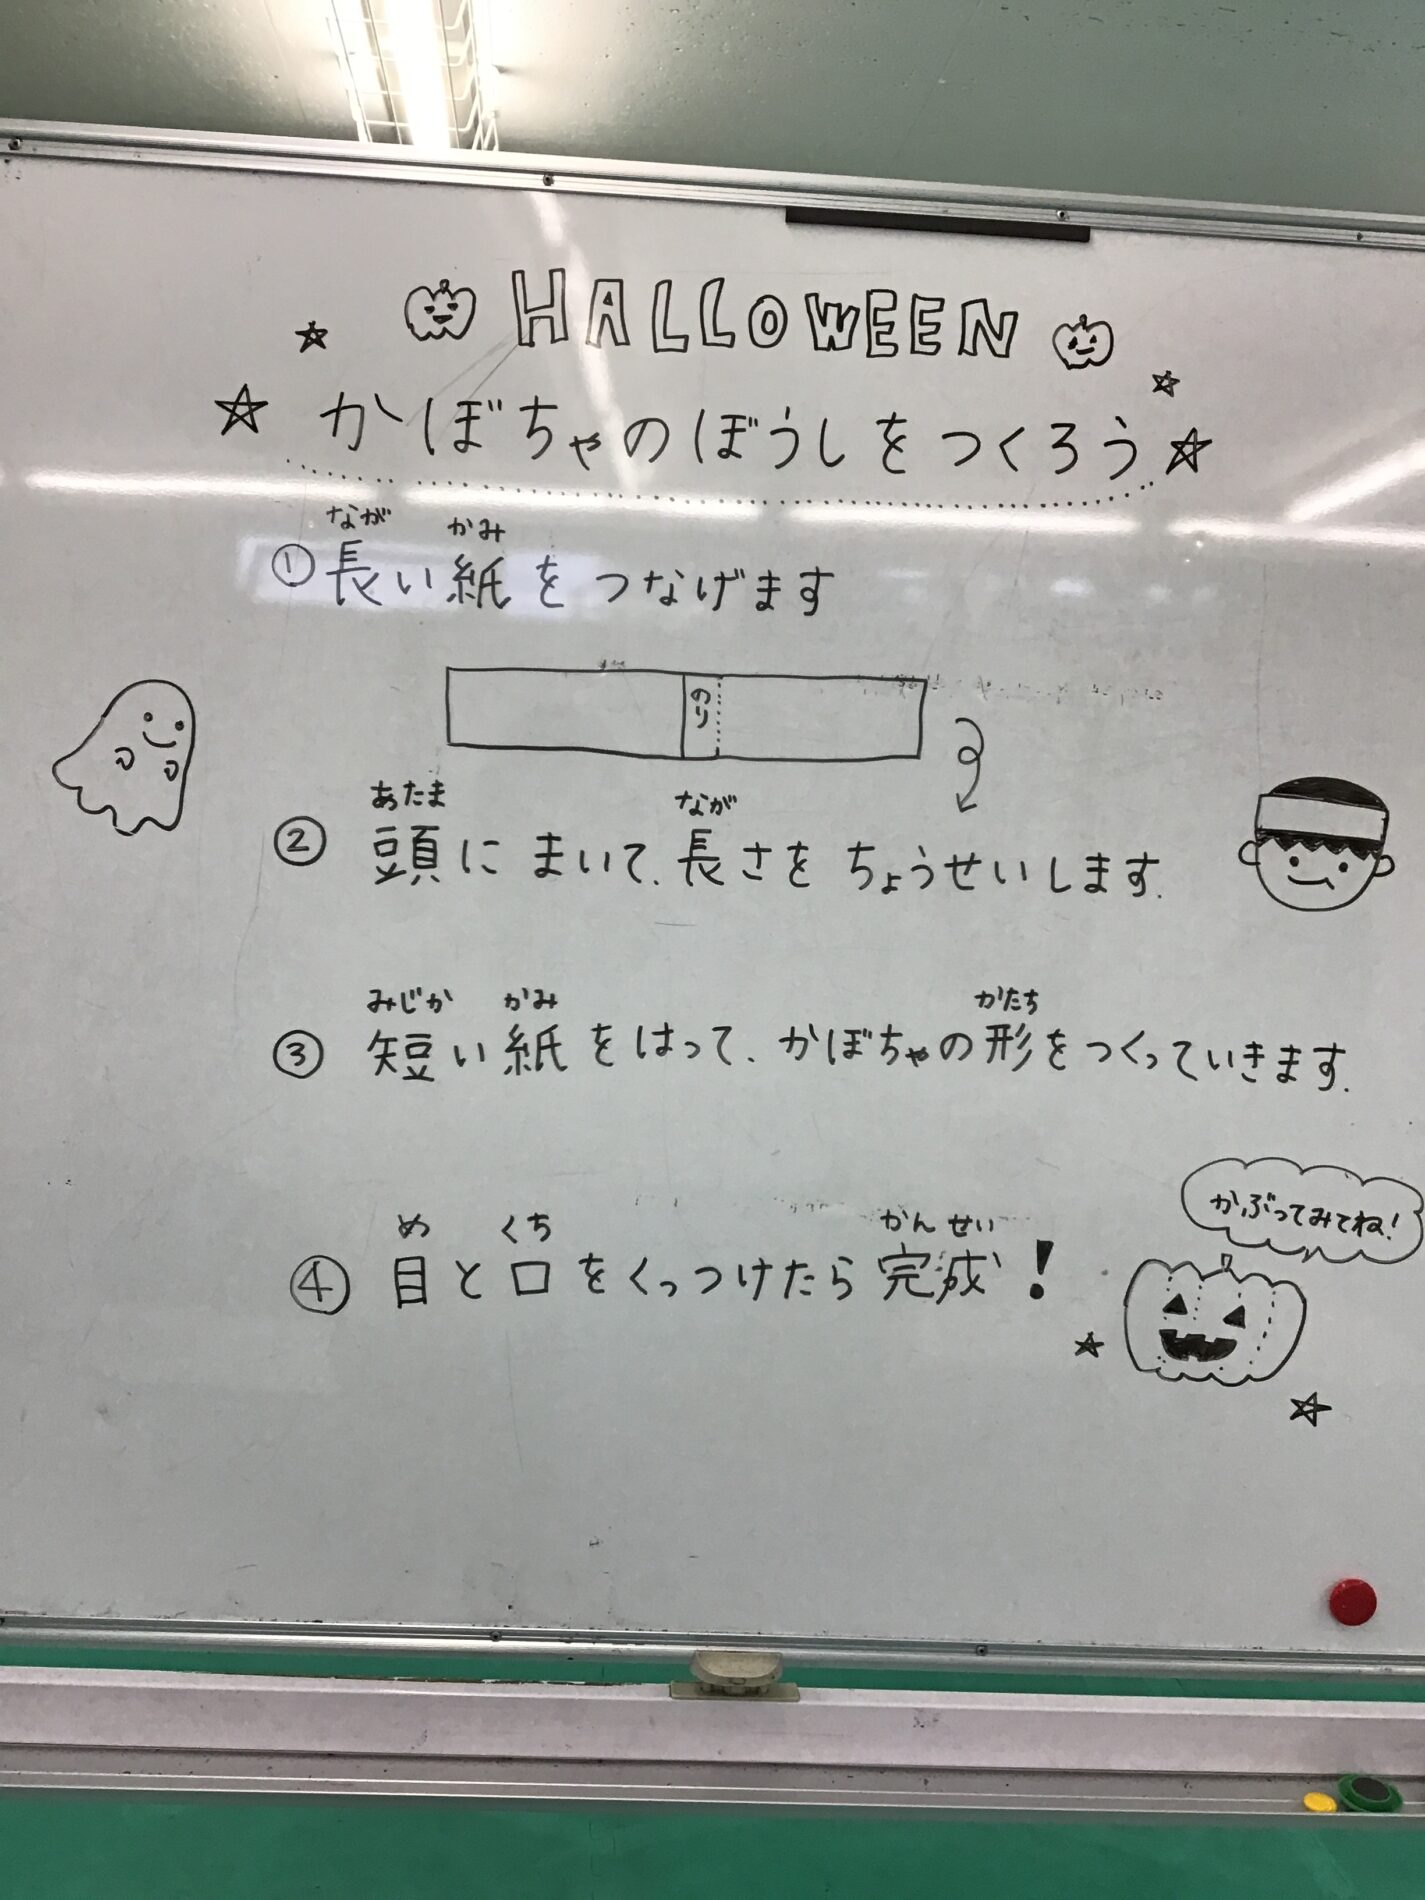 HALLOWEEN
かぼちゃのぼうしをつくろう
なが かみ
①長い紙をつなげます
のり
あたま なが
②頭にまいて、長さをちょうせいします.
みじか かみ かたち
③短い紙をはって、かぼちゃの形をつくっていきます.
め くち かんせい
④目と口をくっつけたら完成!
かぶってみてね!